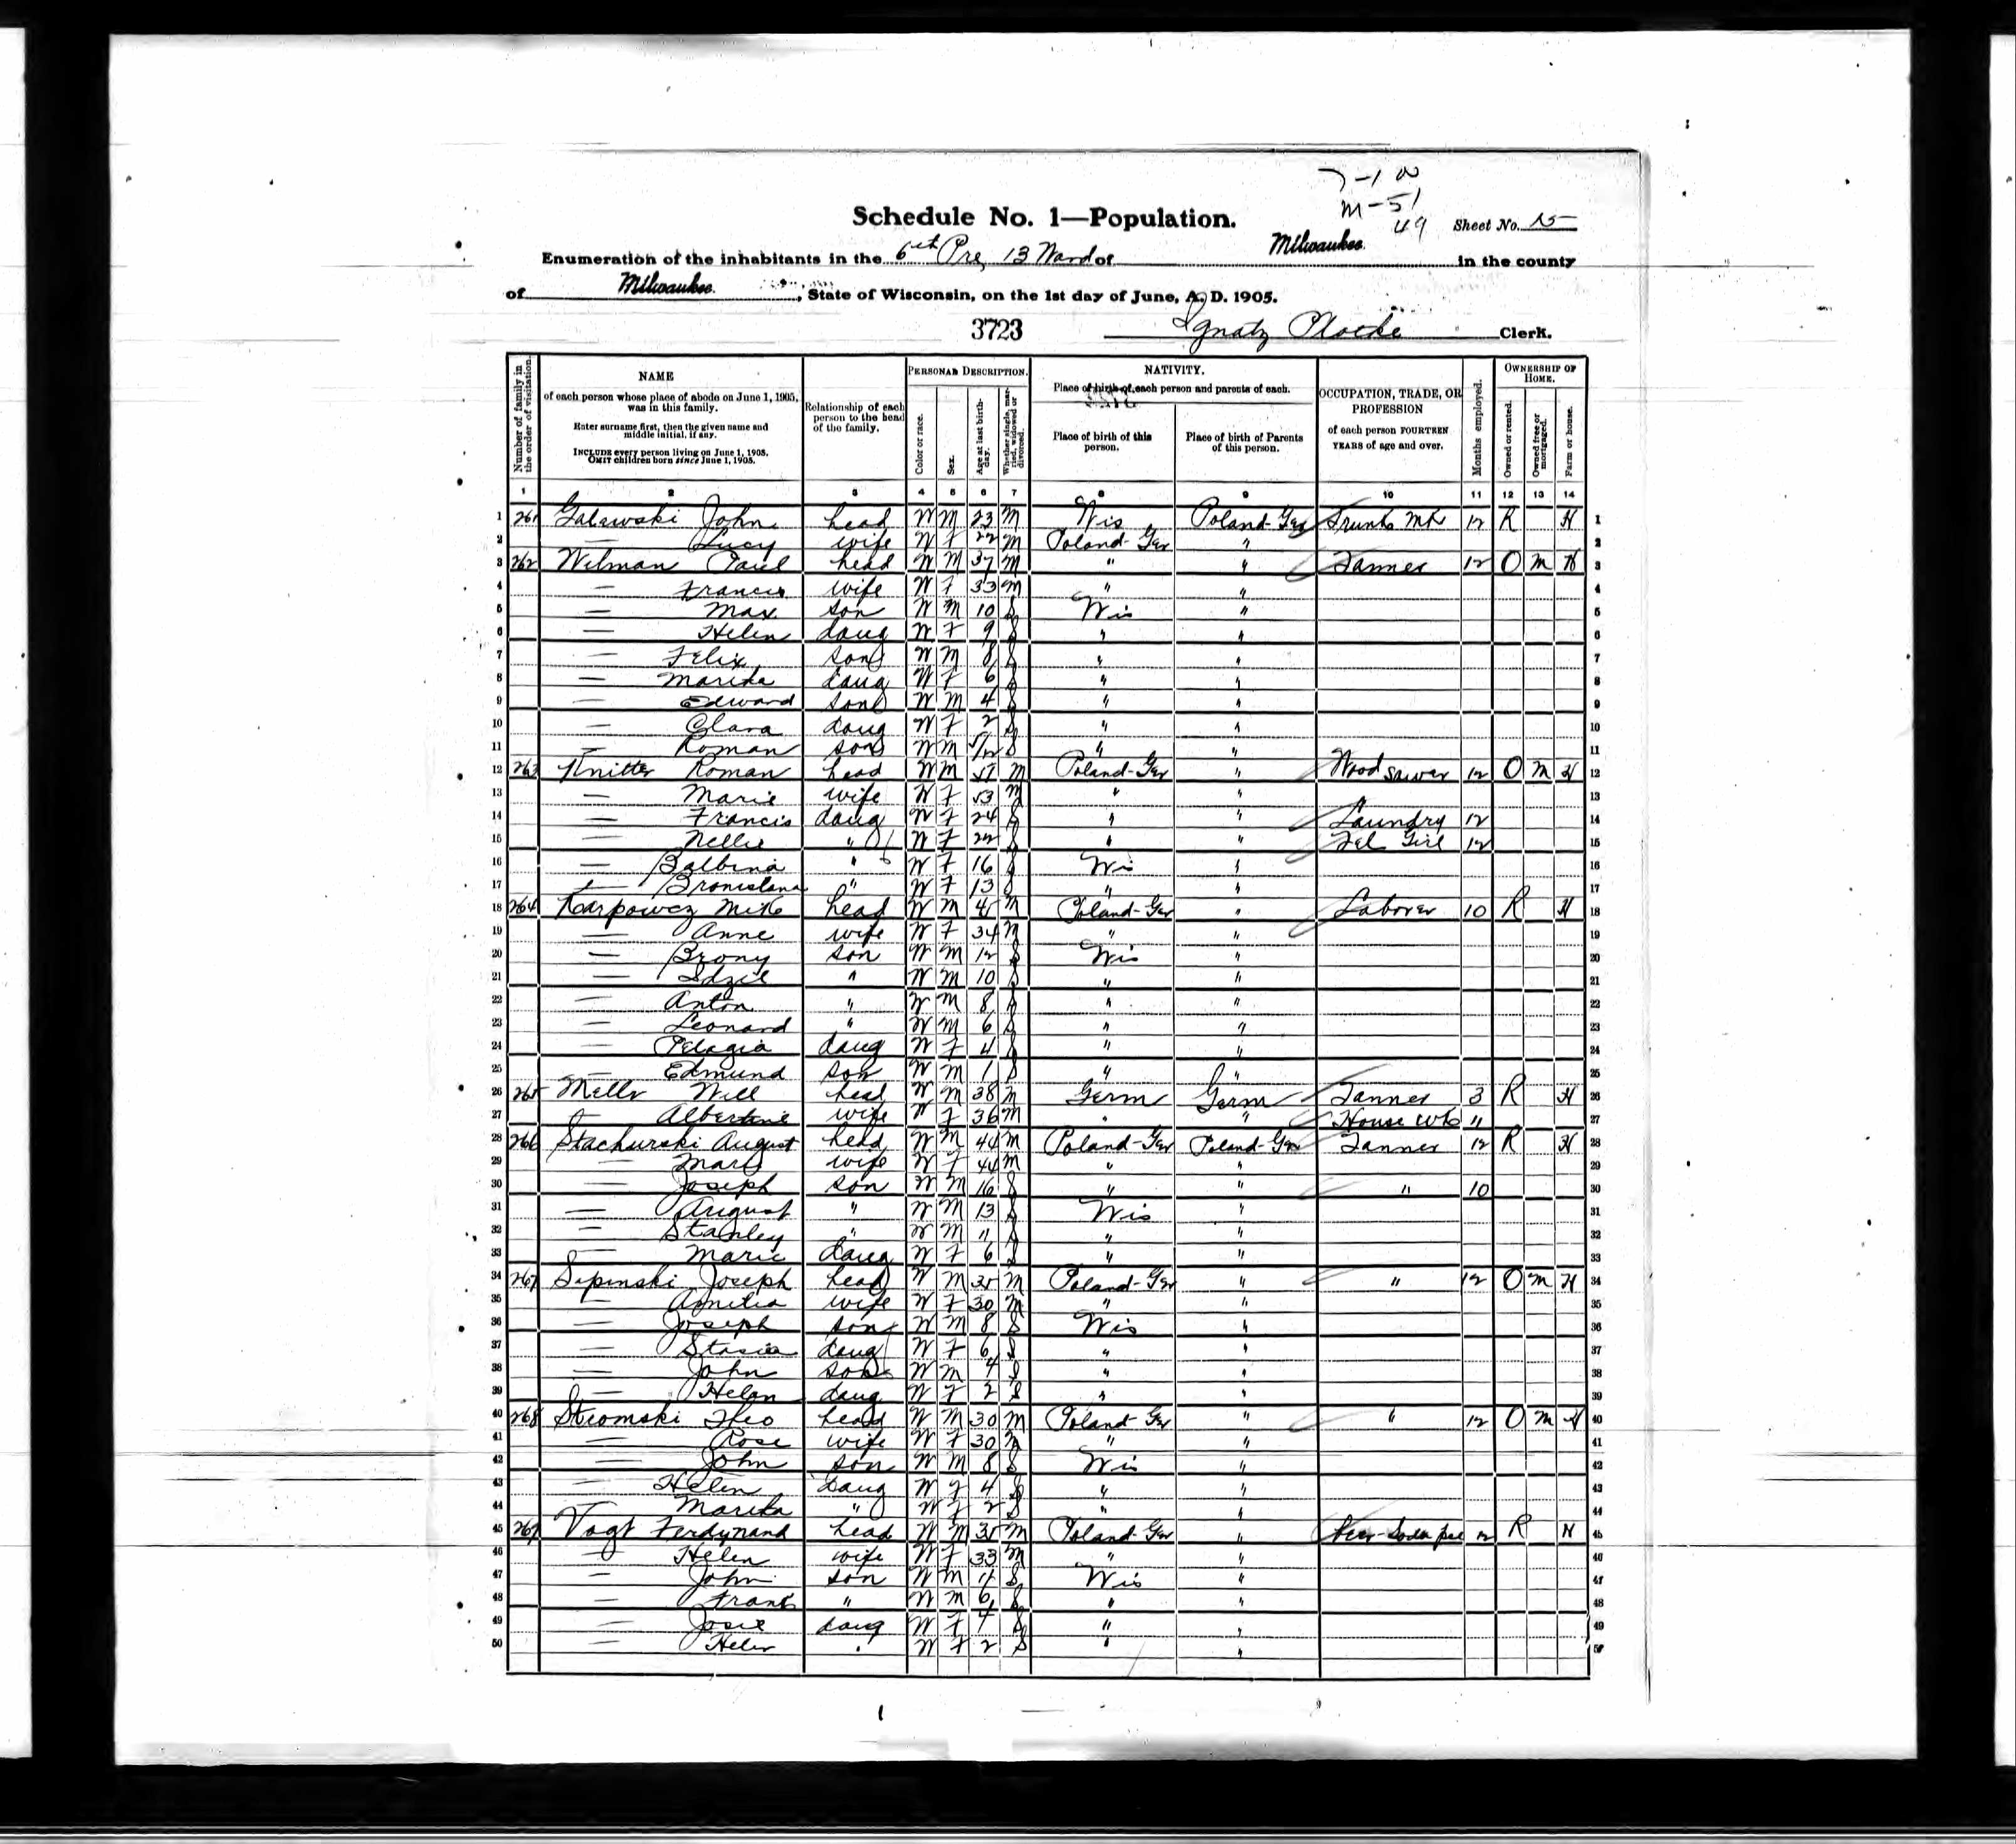 7-100
M-51
49
Schedule No. 1—Population.
Sheet No. 15
Enumeration of the inhabitants in the 6th Pre, 13 Ward of Milwaukee. in the county
of Milwaukee. , State of Wisconsin, on the 1st day of June, A. D. 1905.
3723 Ignatz Clerk.
Number of family in the order of visitation.
NAME
of each person whose place of abode on June 1, 1905, was in this family.
Enter surname first, then the given name and middle initial, if any.
INCLUDE every person living on June 1, 1905.
OMIT children born since June 1, 1905.
Relationship of each person to the head of the family.
PERSONAL DESCRIPTION.
Color or race.
Sex.
Age at last birth-day.
Whether single, mar-ried, widowed or divorced.
NATIVITY.
Place of birth of each person and parents of each.
Place of birth of this person.
Place of birth of Parents of this person.
OCCUPATION, TRADE, OR PROFESSION
of each person FOURTEEN YEARS of age and over.
Months employed.
OWNERSHIP OF HOME.
Owned or rented.
Owned free or mortgaged.
Farm or house.
1 2 3 4 5 6 7 8 9 10 11 12 13 14
1 261 Galewski John head W M 23 M Wis Poland-Ger Trunk Mk 12 R H 1
2 — Lucy wife W F 22 M Poland-Ger " 2
3 262 Welman Paul head W M 37 M " " Tanner 12 O M H 3
4 — Francis wife W F 33 M " " 4
5 — Max son W M 10 S Wis " 5
6 — Helen daug W F 9 S " " 6
7 — Felix son W M 8 S " " 7
8 — Marika daug W F 6 S " " 8
9 — Edward son W M 4 S " " 9
10 — Clara daug W F 2 S " " 10
11 — Roman son W M /12 S " " 11
12 263 Knitter Roman head W M 57 M Poland-Ger " Wood sawer 12 O M H 12
13 — Marie wife W F 53 M " " 13
14 — Francis daug W F 24 S " " Laundry 12 14
15 — Nellie " W F 22 S " " Tel Girl 12 15
16 — Balbina " W F 16 S Wis " 16
17 — Bronislana " W F 13 S " " 17
18 264 Karpowcz Mike head W M 45 M Poland-Ger " Laborer 10 R H 18
19 — Anne wife W F 34 M " " 19
20 — Brony son W M 12 S Wis " 20
21 — Idzie " W M 10 S " " 21
22 — Anton " W M 8 S " " 22
23 — Leonard " W M 6 S " " 23
24 — Pelagia daug W F 4 S " " 24
25 — Edmund son W M 1 S " " 25
26 265 Mellr Will head W M 38 M Germ Germ Tanner 3 R H 26
27 — Albertine wife W F 36 M " " House Wk " 27
28 266 Stachurski August head W M 44 M Poland-Ger Poland-Ger Tanner 12 R H 28
29 — Mary wife W F 44 M " " 29
30 — Joseph son W M 16 S " " " 10 30
31 — August " W M 13 S Wis " 31
32 — Stanley " W M 11 S " " 32
33 — Marie daug W F 6 S " " 33
34 267 Sepinski Joseph head W M 35 M Poland-Ger " " 12 O M H 34
35 — Amelia wife W F 30 M " " 35
36 — Joseph son W M 8 S Wis " 36
37 — Stasia daug W F 6 S " " 37
38 — John son W M 4 S " " 38
39 — Helen daug W F 2 S " " 39
40 268 Stromski Theo head W M 30 M Poland-Ger " " 12 O M H 40
41 — Rose wife W F 30 M " " 41
42 — John son W M 8 S Wis " 42
43 — Helen daug W F 4 S " " 43
44 — Marika " W F 2 S " " 44
45 269 Vogt Ferdynand head W M 35 M Poland-Ger " Beer-Soda 12 R H 45
46 — Helen wife W F 33 M " " 46
47 — John son W M 11 S Wis " 47
48 — Frank " W M 6 S " " 48
49 — Josie daug W F 4 S " " 49
50 — Helen " W F 2 S " " 50